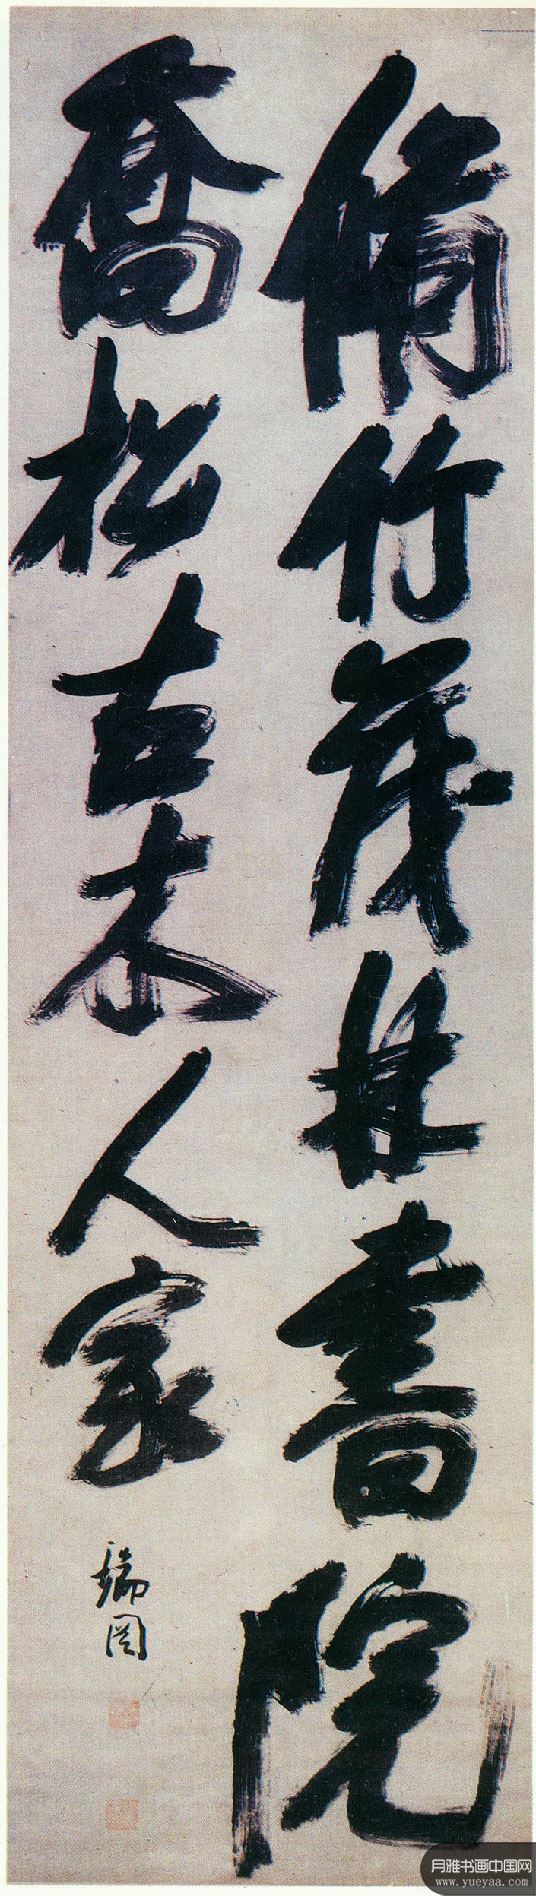 脩竹茂林書院
喬松古木人家
瑞図
月雅书画中国网
www.yueyaa.com